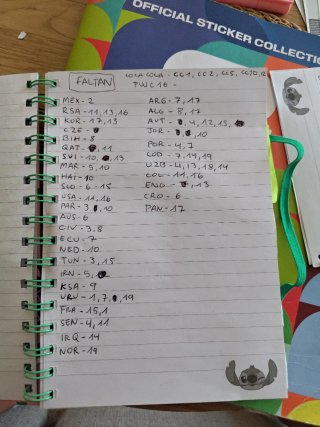 OFFICIAL STICKER COLLECTION
FALTAN
COCA COLA - CC1, CC2, CC5, CC10, 12
FWC 16 -
MEX - 2
RSA - 11, 13, 16
KOR - 17, 13
CZE -
BIH - 8
QAT - 11
SUI - 10, 13
MAR - 5, 10
HAI - 10
SCO - 6 - 15
USA - 11, 16
PAR - 3, 10
AUS - 6
CIV - 3, 8
ECU - 7
NED - 10
TUN - 3, 15
IRN - 5,
KSA - 9
URU - 1, 7, 19
FRA - 15, 1
SEN - 4, 11
IRQ - 14
NOR - 19
ARG - 7, 17
ALG - 8, 17
AUT - 4, 12, 15,
JOR - 10
POR - 4, 7
COD - 7, 14, 19
UZB - 4, 13, 18, 14
COL - 11, 16
ENG - 13
CRO - 6
PAN - 12